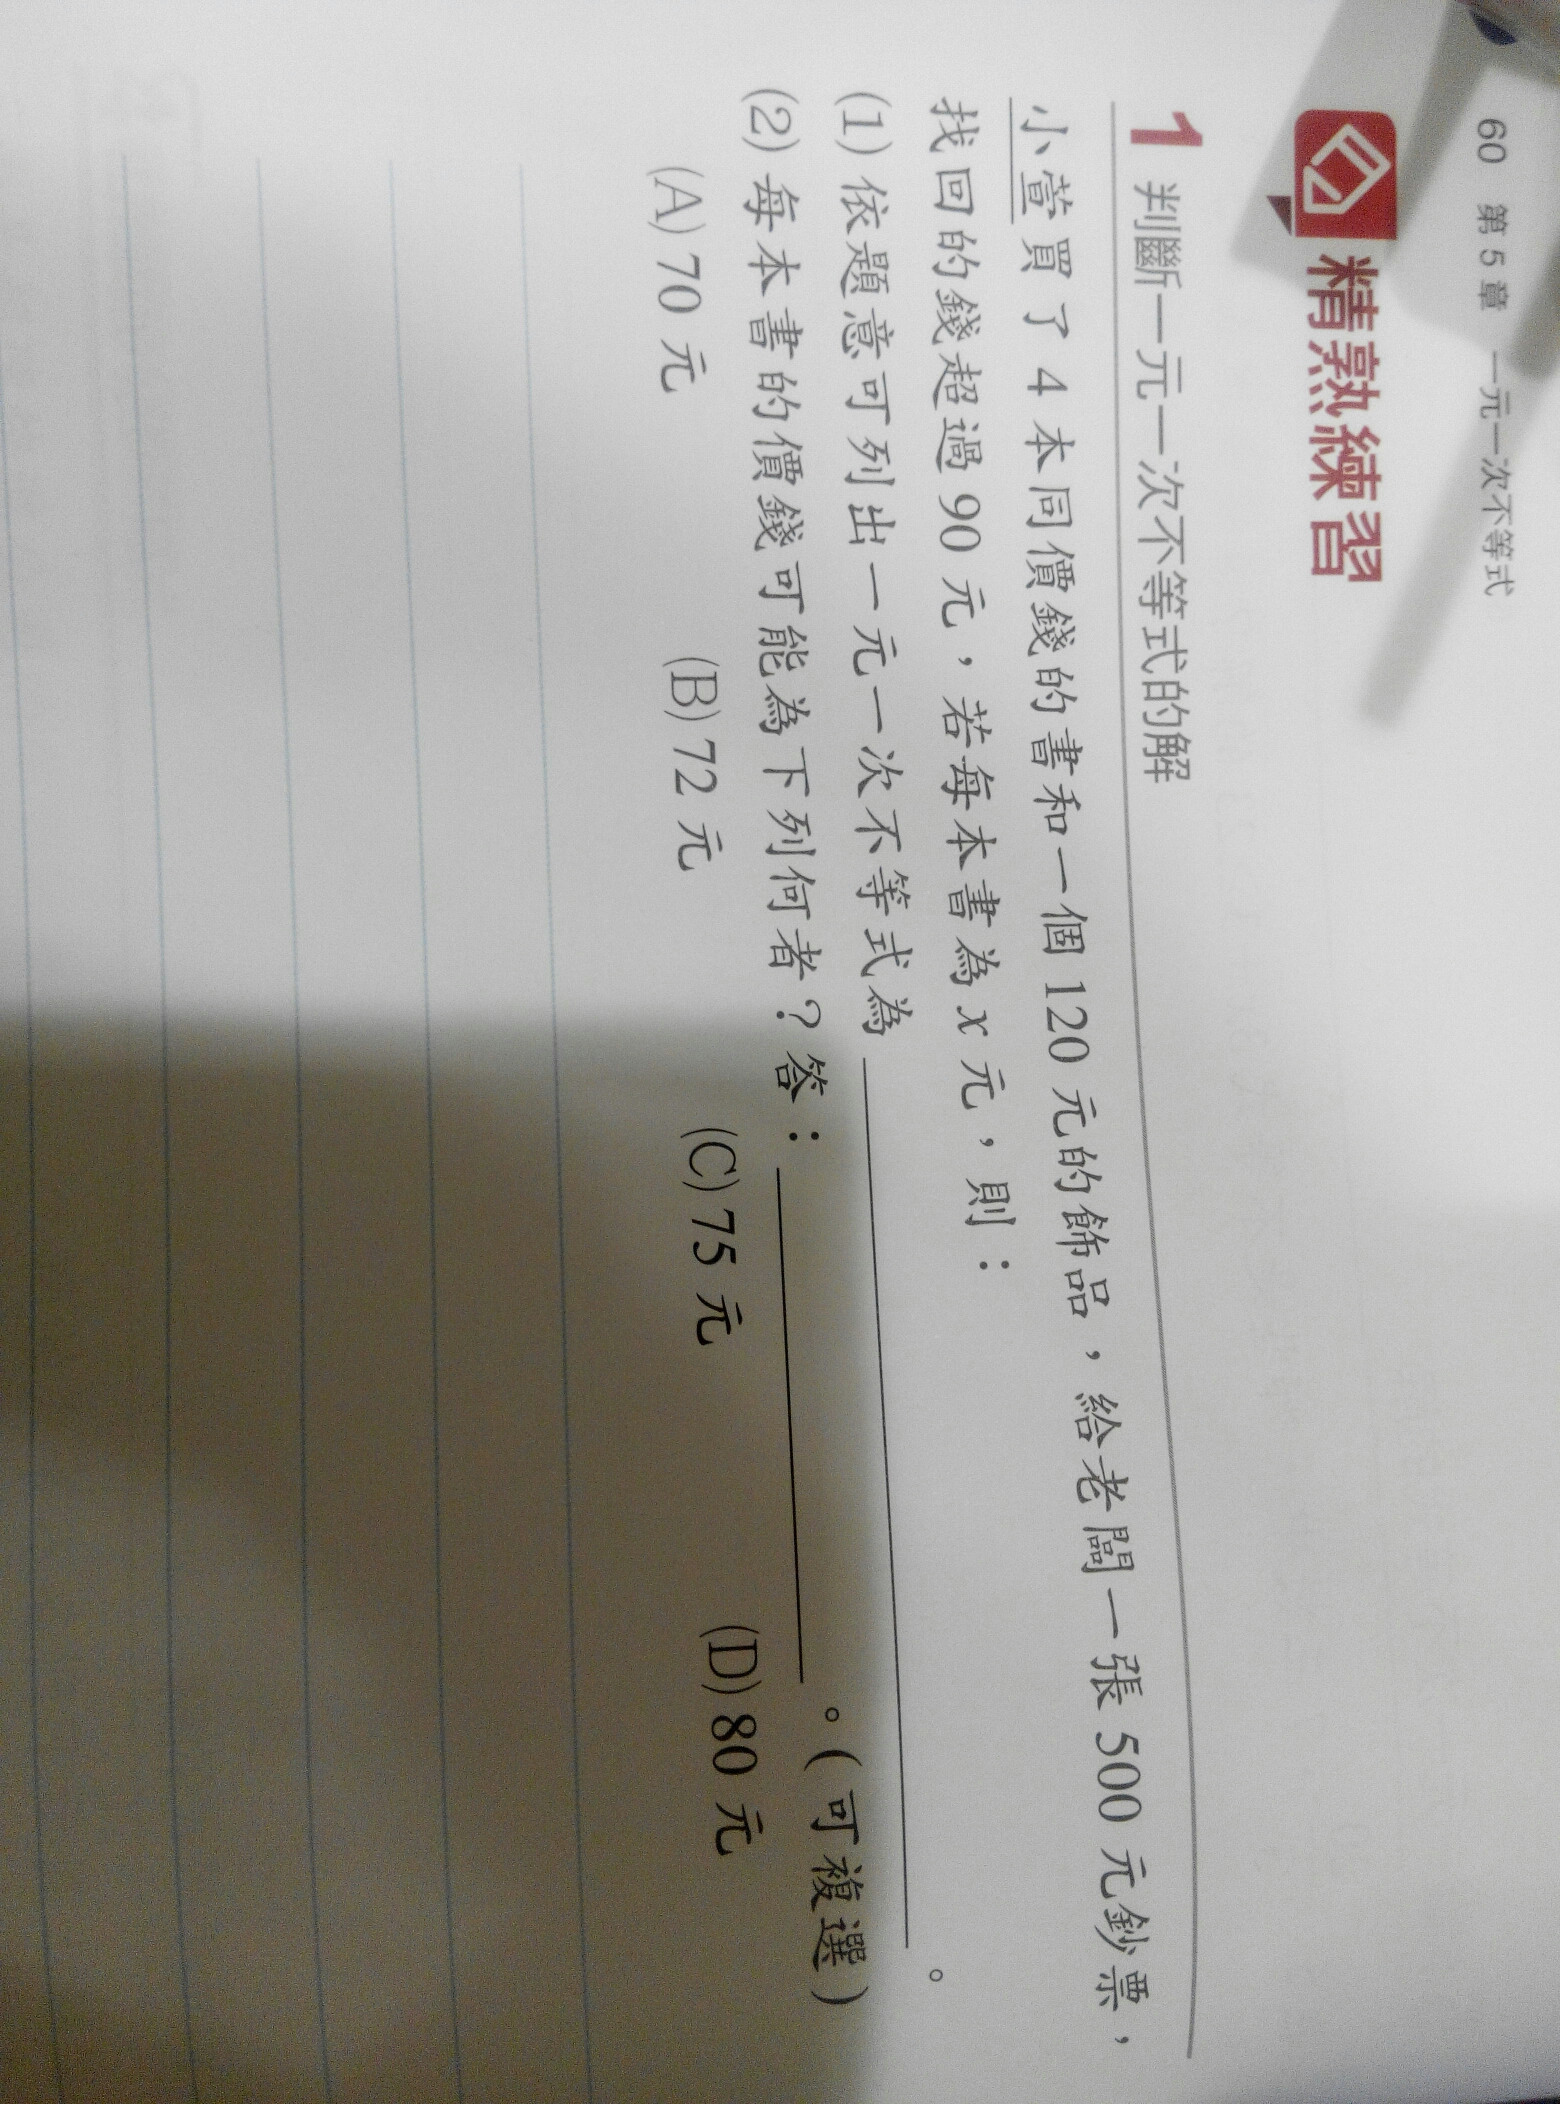 60 第5章 一元一次不等式
精熟練習
1 判斷一元一次不等式的解
小萱買了4本同價錢的書和一個120元的飾品，給老闆一張500元鈔票，
找回的錢超過90元，若每本書為x元，則：
(1)依題意可列出一元一次不等式為＿＿＿＿＿＿＿＿＿＿。
(2)每本書的價錢可能為下列何者？答：＿＿＿＿＿＿。(可複選)
(A)70元 (B)72元 (C)75元 (D)80元